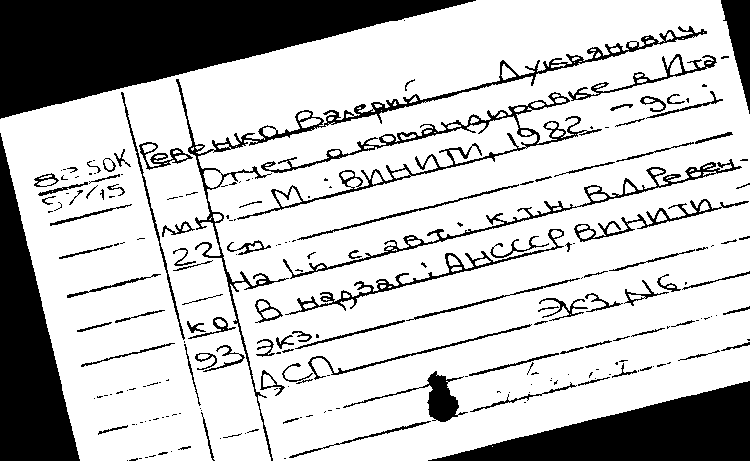 82 50К
57/15
Ревенко, Валерий Лукьянович.
Отчет о командировке в Ита-
лию. – М.: ВИНИТИ, 1982. – 9с.;
22 см.
На 1-й с. авт.: к.т.н. В.Л. Ревен-
ко. В надзаг.: АНСССР, ВИНИТИ. –
93 экз.
ДСП. Экз. №6.